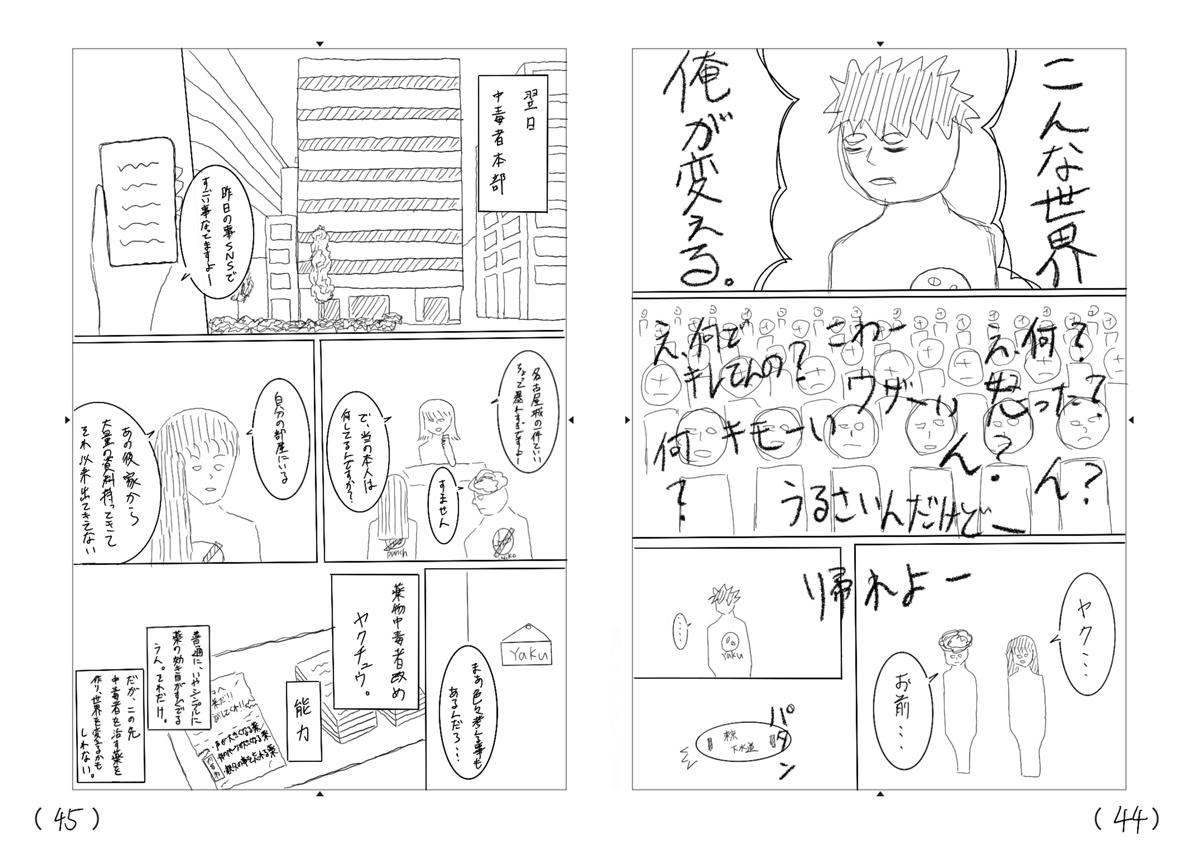 こんな世界
俺が変える。
え、何？
怒った？
ん？
こわー
ウザーい
ん？
え、何で
キレてんの？
キモーい
何？
うるさいんだけどー
帰れよー
ヤク…
お前…
……
yaku
パタン
下水道
(44)
翌日
中毒者本部
昨日の事SNSで
すごい事なってますよー
名古屋城の件でいい
で、当の本人は
何してるんですか？
すません
punch
niko
自分の部屋にいる
あの後家から
大量の資料持ってきて
それ以来出てきてない
yaku
まあ色々考える事も
あるんだろ…
薬物中毒者改め
ヤクチュウ。
能力
普通に、いやシンプルに
薬の効き目がすんでる
うん。それだけ。
だが、この先
中毒者を治す薬を
作り、世界を変えるかも
しれない。
声が大きくなる薬
(45)